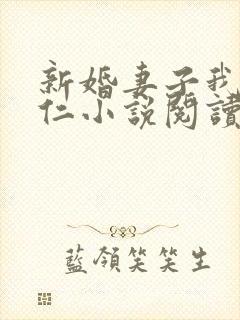 新婚妻子我
仁小說閱讀
藍領笑笑生